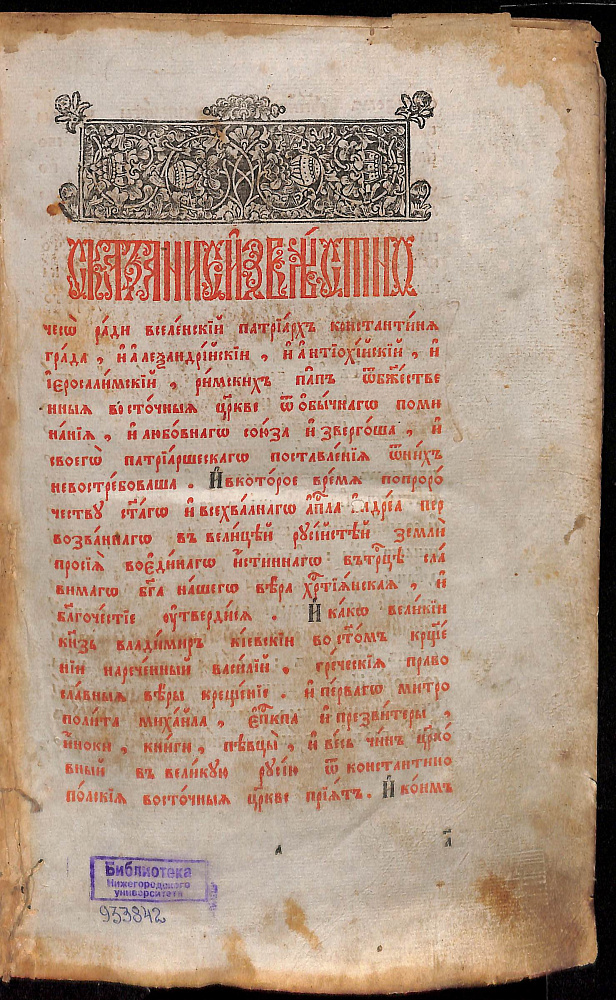 СКАЗАНИЕ И҆ЗВѢ́СТНО
чесѡ̀ ра́ди вселе́нскїй патрїа́рхъ константи́нѧ
гра́да , и҆ а҆леѯандрі́йскїи , и҆ а҆нтїохі́йскїй , и҆
і҆еросали́мскїй , ри́мскихъ па́пъ ѿ бж҃е́стве
нныѧ восто́чныѧ цр҃кве ѿ ѻ҆бы́чнагѡ поми
на́нїѧ , и҆ любо́внагѡ сою́за и҆зверго́ша , и҆
своегѡ̀ патрїа́ршескагѡ поставле́нїѧ ѿ ни́хъ
невостре́боваша . И҆ в кото́рое вре́мѧ по проро́
честву ст҃а́гѡ и҆ всехва́лнагѡ а҆пⷭ҇ла а҆ндре́а пер
возва́ннагѡ въ вели́цѣй рꙋсі́йстѣй землѝ
просїѧ̀ во є҆ди́нагѡ и҆́стиннагѡ въ трⷪ҇цѣ сла́
вимагѡ бг҃а на́шегѡ вѣ́ра хрⷭ҇тїѧ́нскаѧ , и҆
бл҃гоче́стїе ᲂу҆тверди́сѧ . И҆ ка́кѡ вели́кїи
кн҃зь влади́миръ кі́евскїи во ст҃о́мъ крщ҃е́
нїи нарече́нный васи́лїй , гре́ческїѧ право
сла́вныѧ вѣ́ры креще́нїе . и҆ пе́рвагѡ митро
поли́та миха́ила , є҆пⷭ҇кпа и҆ презви́теры ,
и҆́ноки , кни́ги , пѣвцы̀ , и҆ ве́сь чи́нъ цр҃ко́
вный въ вели́кꙋю рꙋсі́ю ѿ константино
по́лскїѧ восто́чныѧ цр҃кве прїѧ́тъ . И҆ ко́имъ
а҃
Библиотека
Нижегородского
университета
933842